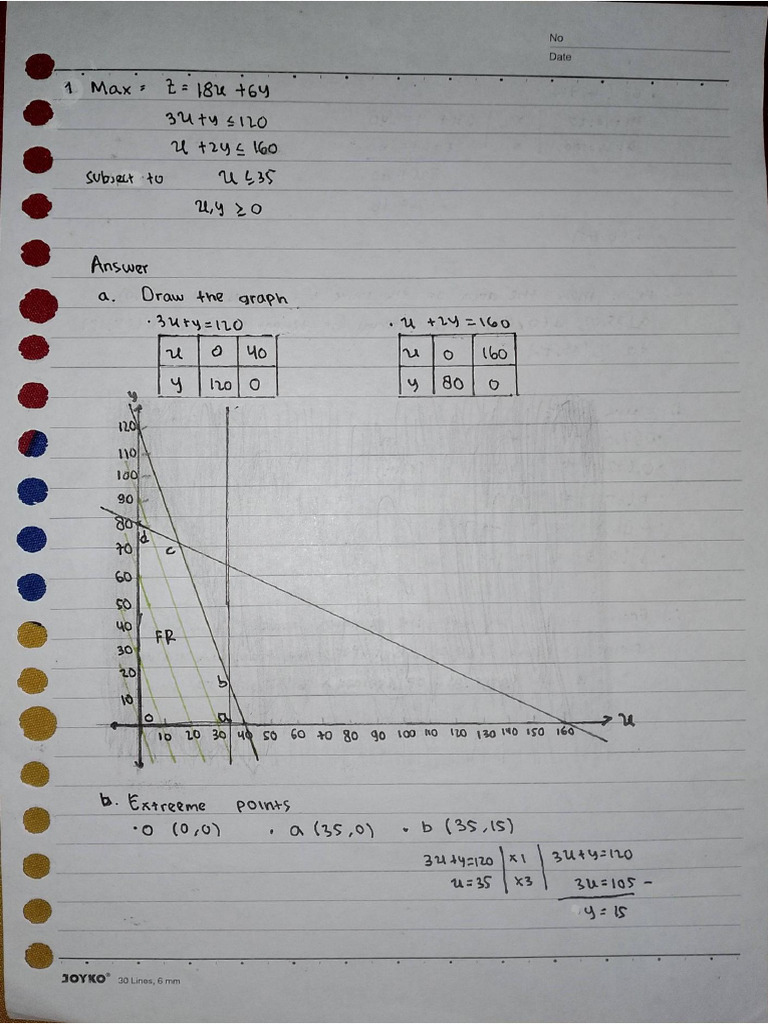 No
Date
1 Max = Z = 18x + 6y
3x + y ≤ 120
x + 2y ≤ 160
Subject to x ≤ 35
x, y ≥ 0
Answer
a. Draw the graph
• 3x + y = 120 • x + 2y = 160
x 0 40 x 0 160
y 120 0 y 80 0
y
120
110
100
90
80
d
70 c
60
50
40
FR
30
20
b
10
0 a x
10 20 30 40 50 60 70 80 90 100 110 120 130 140 150 160
b. Extreeme points
• 0 (0,0) • a (35,0) • b (35,15)
3x + y = 120 | x1 | 3x + y = 120
x = 35 | x3 | 3x = 105 -
y = 15
JOYKO® 30 Lines, 6 mm